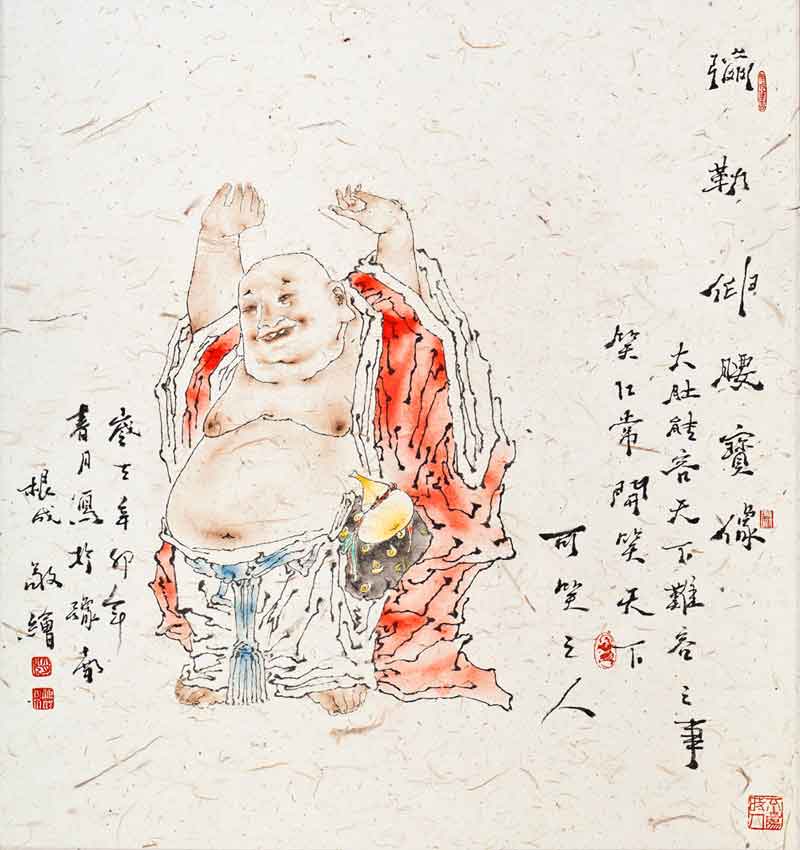 彌勒伸腰寶像
大肚能容天下難容之事
笑口常開笑天下
可笑之人
卯年
春月寫於豫
根成敬繪